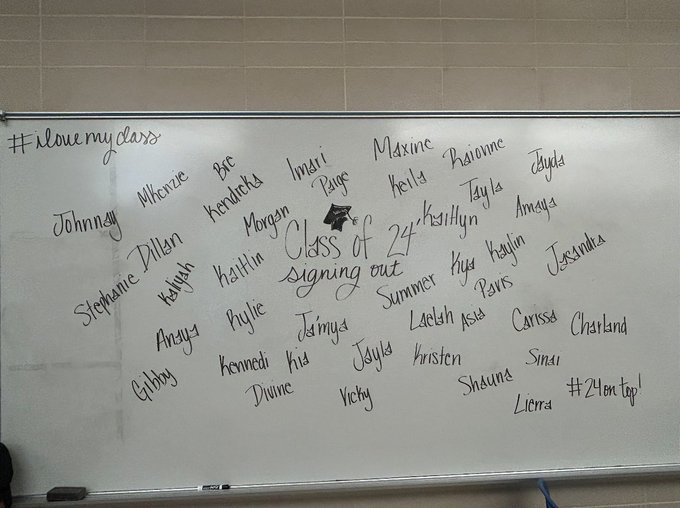 #ilovemyclass
Maxine
Raionne
Jayda
Bre
Imari
Mkenzie
Kendreka
Paige
Keila
Tayla
Johnnay
Morgan
Kaitlyn
Amaya
Class of 24'
Dillan
Kaitlin
signing out
Kya
Kaylin
Jasandra
Stephanie
Kaliyah
Summer
Paris
Anaya
Rylie
Ja'mya
Laelah
Asia
Carissa
Charland
Gibby
Kennedi
Kia
Jayla
Kristen
Sinai
Divine
Vicky
Shauna
Lierra
#24 on top!